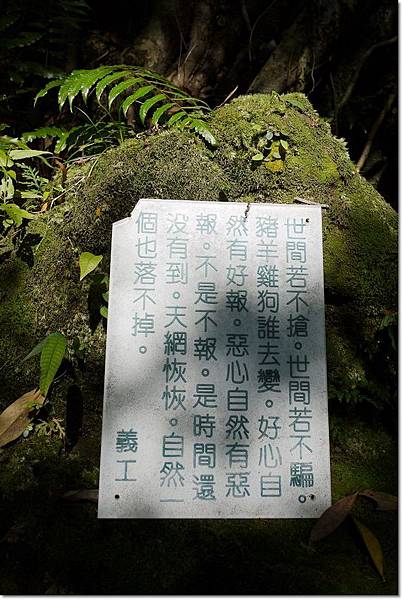 世間若不搶。世間若不騙。
豬羊雞狗誰去變。好心自
然有好報。惡心自然有惡
報。不是不報。是時間還
沒有到。天網恢恢。自然一
個也落不掉。
義工